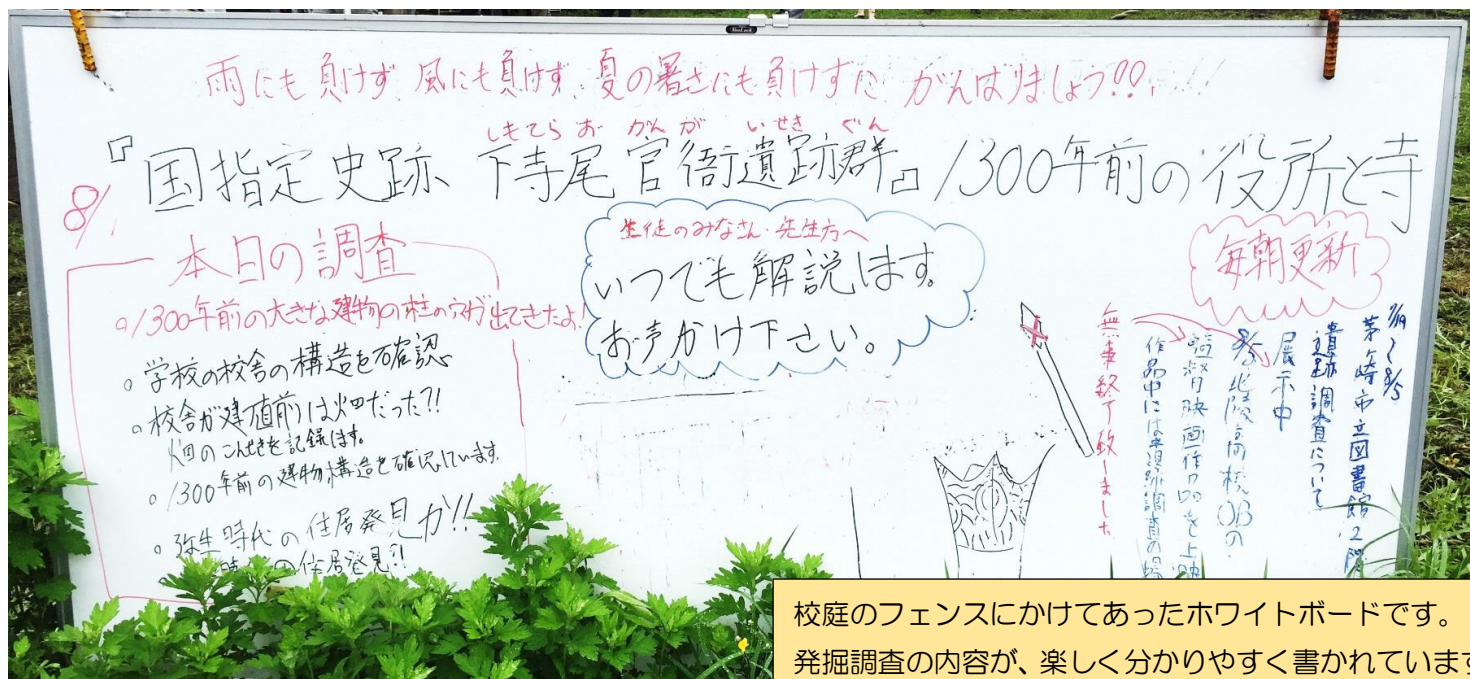 雨にも負けず、風にも負けず、夏の暑さにも負けずに がんばりましょう!!
しもてらお かんが いせき ぐん
『国指定史跡 下寺尾官衙遺跡群』1300年前の役所と寺
8/1
本日の調査
1300年前の大きな建物の柱の穴が出てきたよ!
学校の校舎の構造を確認
校舎が建つ直前は畑だった?!
畑のこんせきを記録します。
1300年前の建物構造を確認しています
弥生時代の住居発見か!!
の住居発見?!
生徒のみなさん・先生方へ
いつでも解説します。
お声かけ下さい。
毎朝更新
7/19~8/5
茅ヶ崎市立図書館2階
遺跡調査について
展示中
8/5 北陵高校OBの
監督映画作品を上映
作品中には 遺跡調査の
無事終了致しました
校庭のフェンスにかけてあったホワイトボードです。
発掘調査の内容が、楽しく分かりやすく書かれています